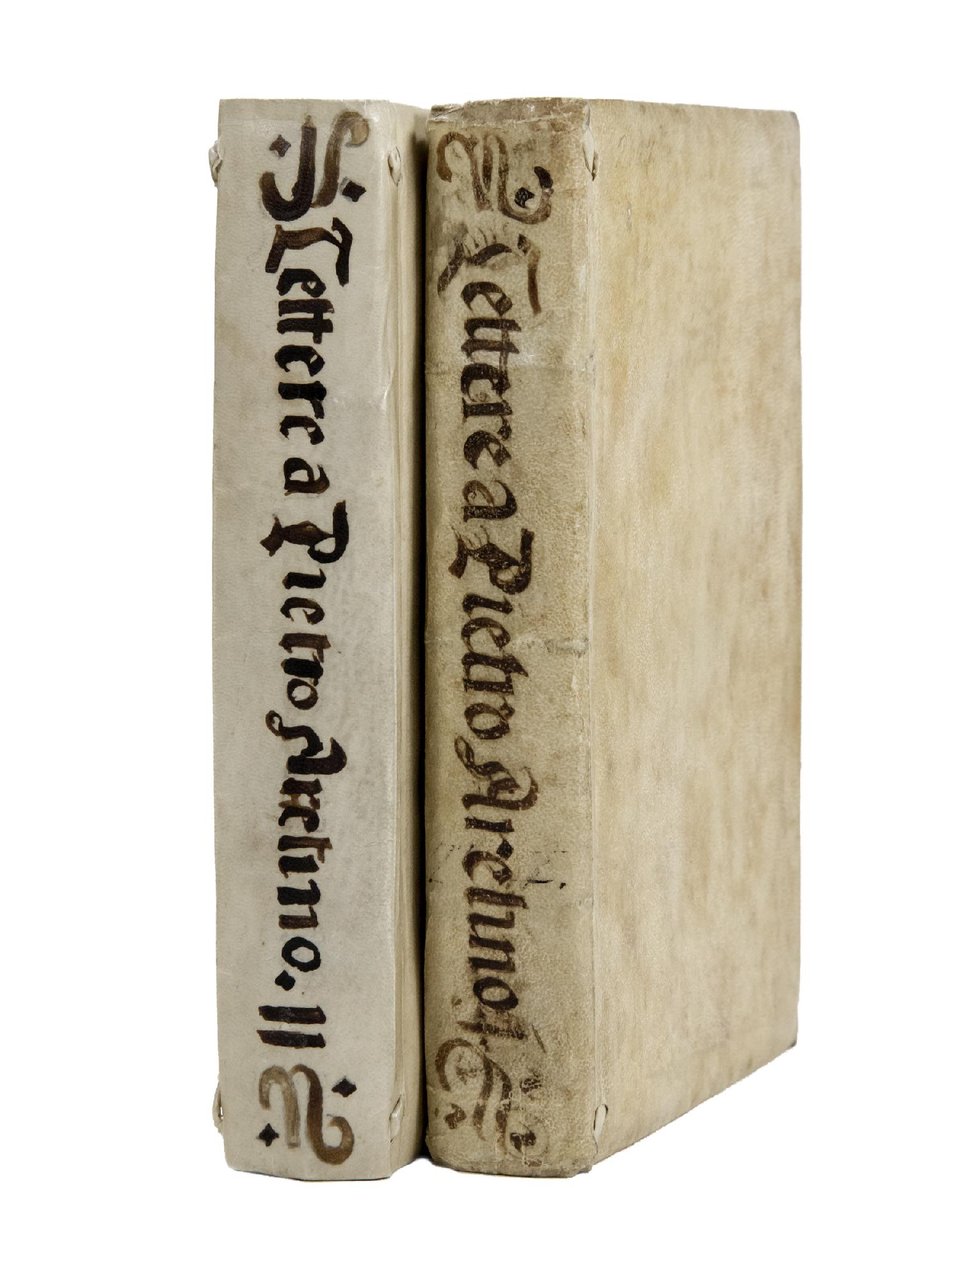 Lettere a Pietro Aretino. II
Lettere a Pietro Aretino. I